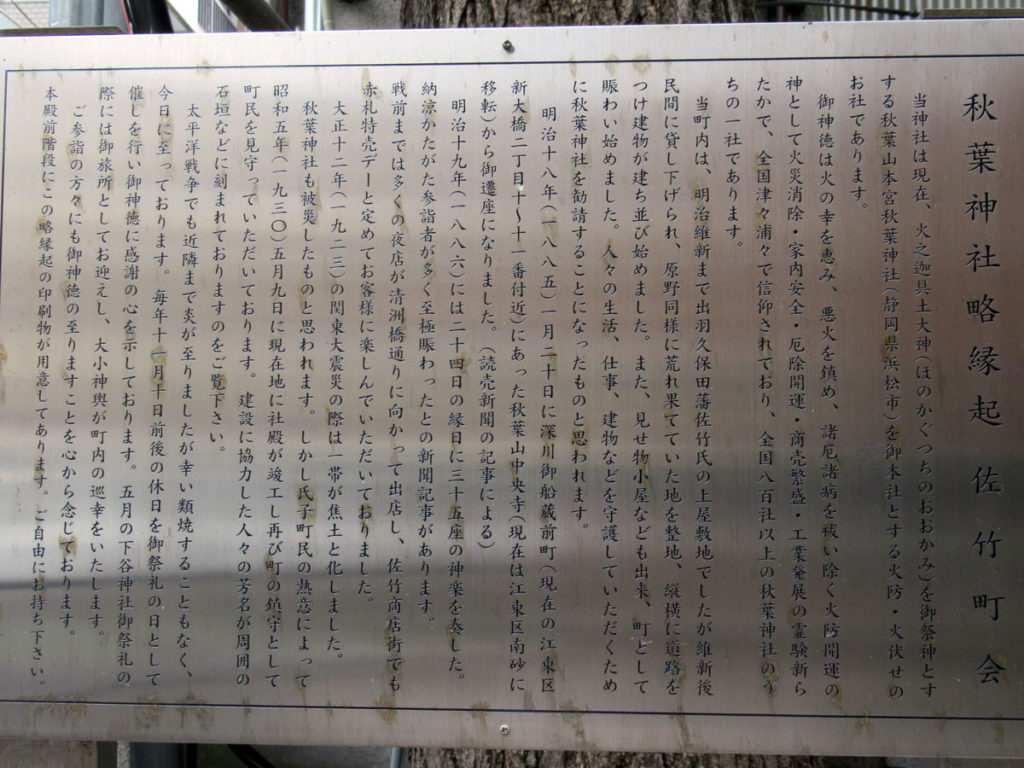 秋葉神社略縁起 佐竹町会
当神社は現在、火之迦具土大神(ほのかぐつちのおおかみ)を御祭神とす
する秋葉山本宮秋葉神社(静岡県浜松市)を御本社とする火防・火伏せの
お社であります。
御神徳は火の幸を恵み、悪火を鎮め、諸厄諸病を祓い除く火防開運の
神として火災消除・家内安全・厄除開運・商売繁盛・工業発展の霊験新ら
たかで、全国津々浦々で信仰されており、全国八百社以上の秋葉神社のう
ちの一社であります。
当町内は、明治維新まで出羽久保田藩佐竹氏の上屋敷地でしたが維新後
民間に貸し下げられ、原野同様に荒れ果てていた地を整地、縦横に道路を
つけ建物が建ち並び始めました。また、見せ物小屋なども出来、町として
賑わい始めました。人々の生活、仕事、建物などを守護していただくため
に秋葉神社を勧請することになったものと思われます。
明治十八年(一八八五)一月二十日に深川御船蔵前町(現在の江東区
新大橋二丁目十~十一番付近)にあった秋葉山中央寺(現在は江東区南砂に
移転)から御遷座になりました。(読売新聞の記事による)
明治十九年(一八八六)には二十四日の縁日に三十五座の神楽を奏した。
納涼かたがた参詣者が多く至極賑わったとの新聞記事があります。
戦前までは多くの夜店が清洲橋通りに向かって出店し、佐竹商店街でも
赤札特売デーと定めてお客様に楽しんでいただいておりました。
大正十二年(一九二三)の関東大震災の際は一帯が焦土と化しました。
秋葉神社も被災したものと思われます。しかし氏子町民の熱意によって
昭和五年(一九三〇)五月九日に現在地に社殿が竣工し再び町の鎮守として
町民を見守っていただいております。建設に協力した人々の芳名が周囲の
石垣などに刻まれておりますのをご覧下さい。
太平洋戦争でも近隣まで炎が至りましたが幸い類焼することもなく、
今日に至っております。毎年十一月十日前後の休日を御祭礼の日として
催しを行い御神徳に感謝の心を示しております。五月の下谷神社御祭礼の
際には御旅所としてお迎えし、大小神輿が町内の巡幸をいたします。
ご参詣の方々にも御神徳の至りますことを心から念じております。
本殿前階段にこの略縁起の印刷物が用意してあります。ご自由にお持ち下さい。